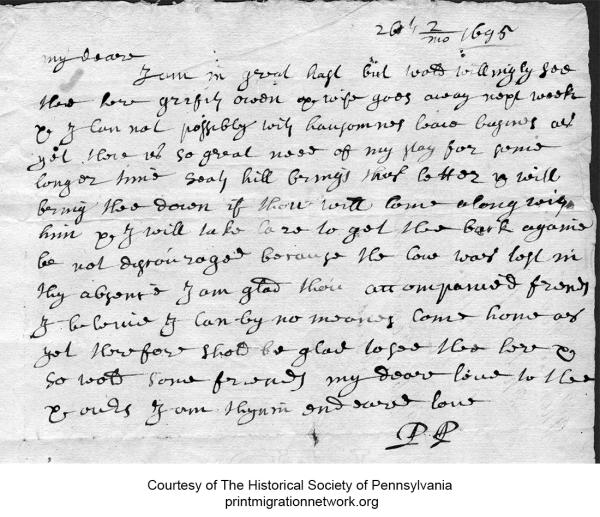 26th 2/mo 1695
my deare
I am in great hast but wod willingly see
thee here griffith owen & wife goes away next week
& I can not possibly with hansomnes leave busines as
yet there is so great need of my stay for some
longer time hill brings this letter & will
bring thee down if thou will come along with
him & I will take care to get thee back againe
be not discouraged because the was lost in
thy absence I am glad thou accompanied friends
I beleive I can by no meanes come home as
yet therefore shod be glad to see thee here &
so wod some friends my deare love to thee
& ours I am thyn in endeared love
PP
Courtesy of The Historical Society of Pennsylvania
printmigrationnetwork.org